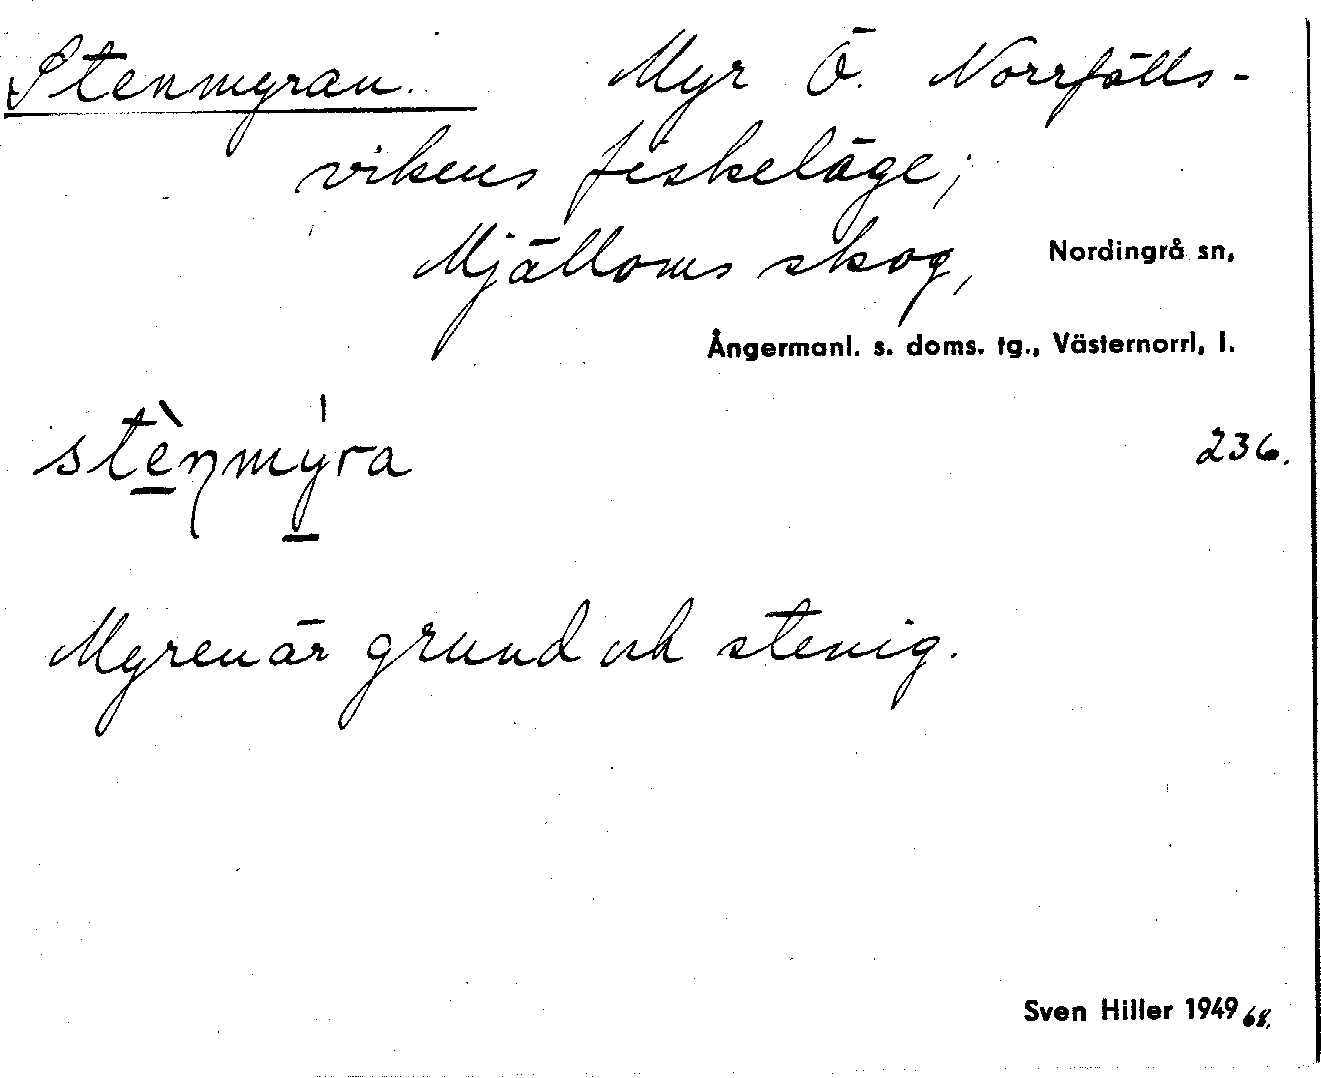 Stenmyran. Myr Ö. Norrfälls-
vikens fiskeläge;
Mjälloms skog, Nordingrå sn,
Ångermanl. s. doms. tg., Västernorrl, l.
stè̱ŋmý̱ra 236.
Myren är grund och stenig.
Sven Hiller 1949 68.